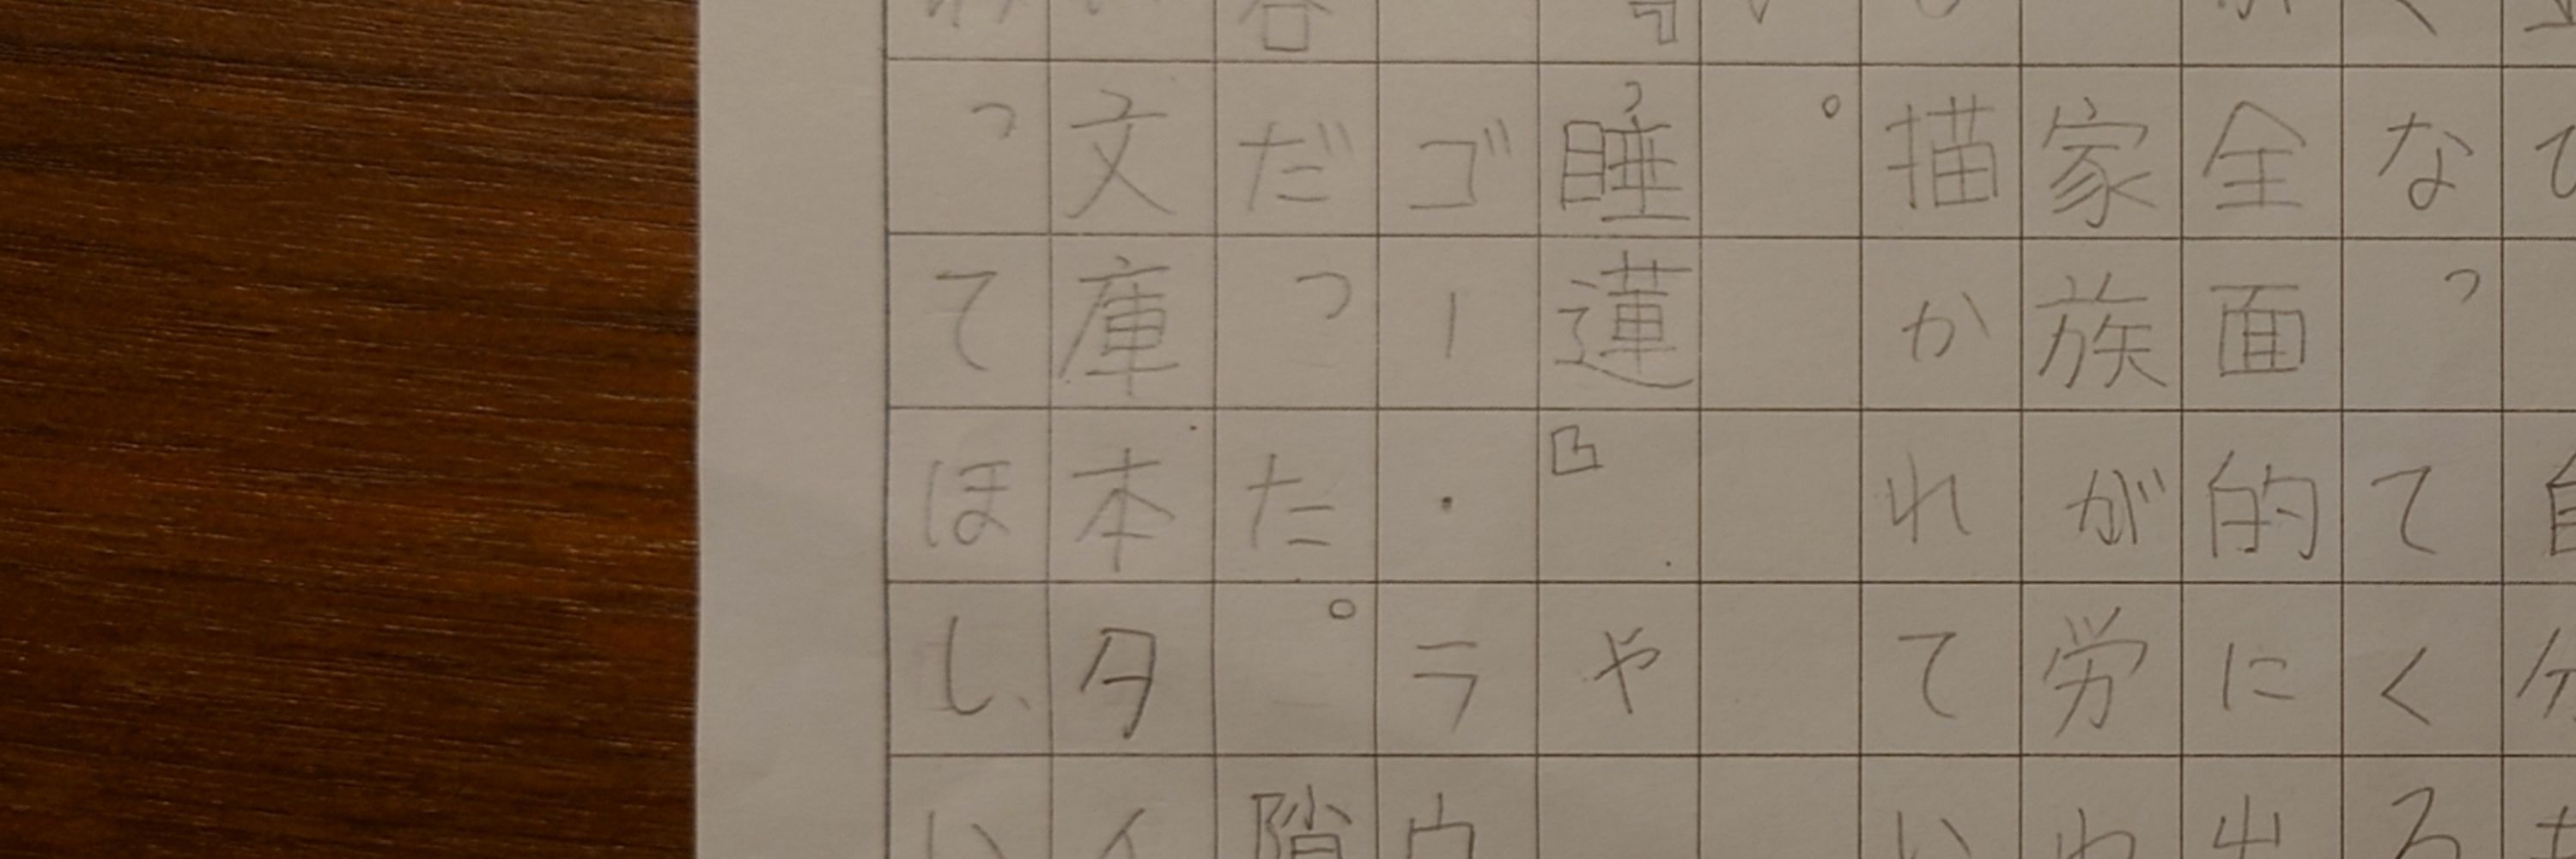 なってくる
全面的に出
家族が労わ
描かれてい
。
睡蓮』や
ゴー・ラウ
容だった。隙
文庫本タイ
ってほしい